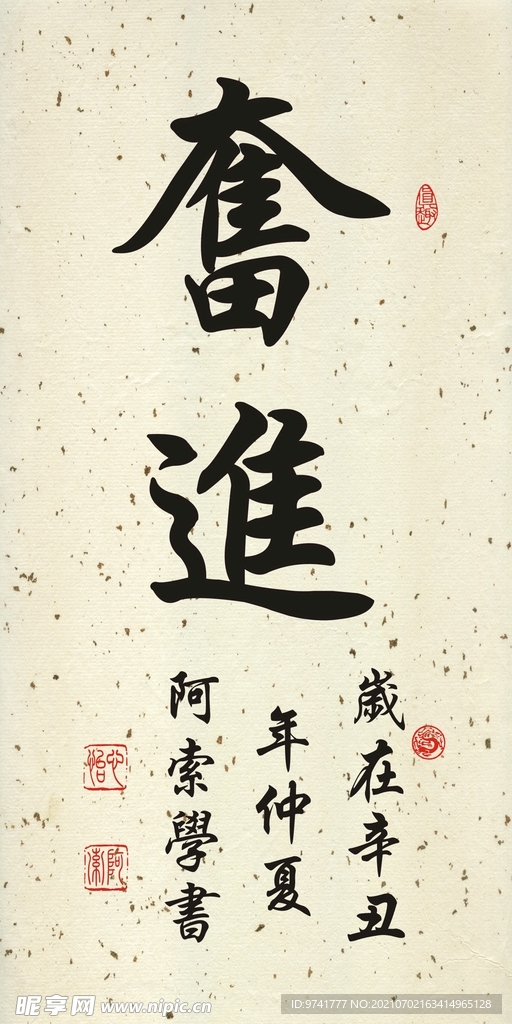 奮進
歲在辛丑
年仲夏
阿索學書
昵享网 www.nipic.cn
ID:9741777 NO:20210702163414965128